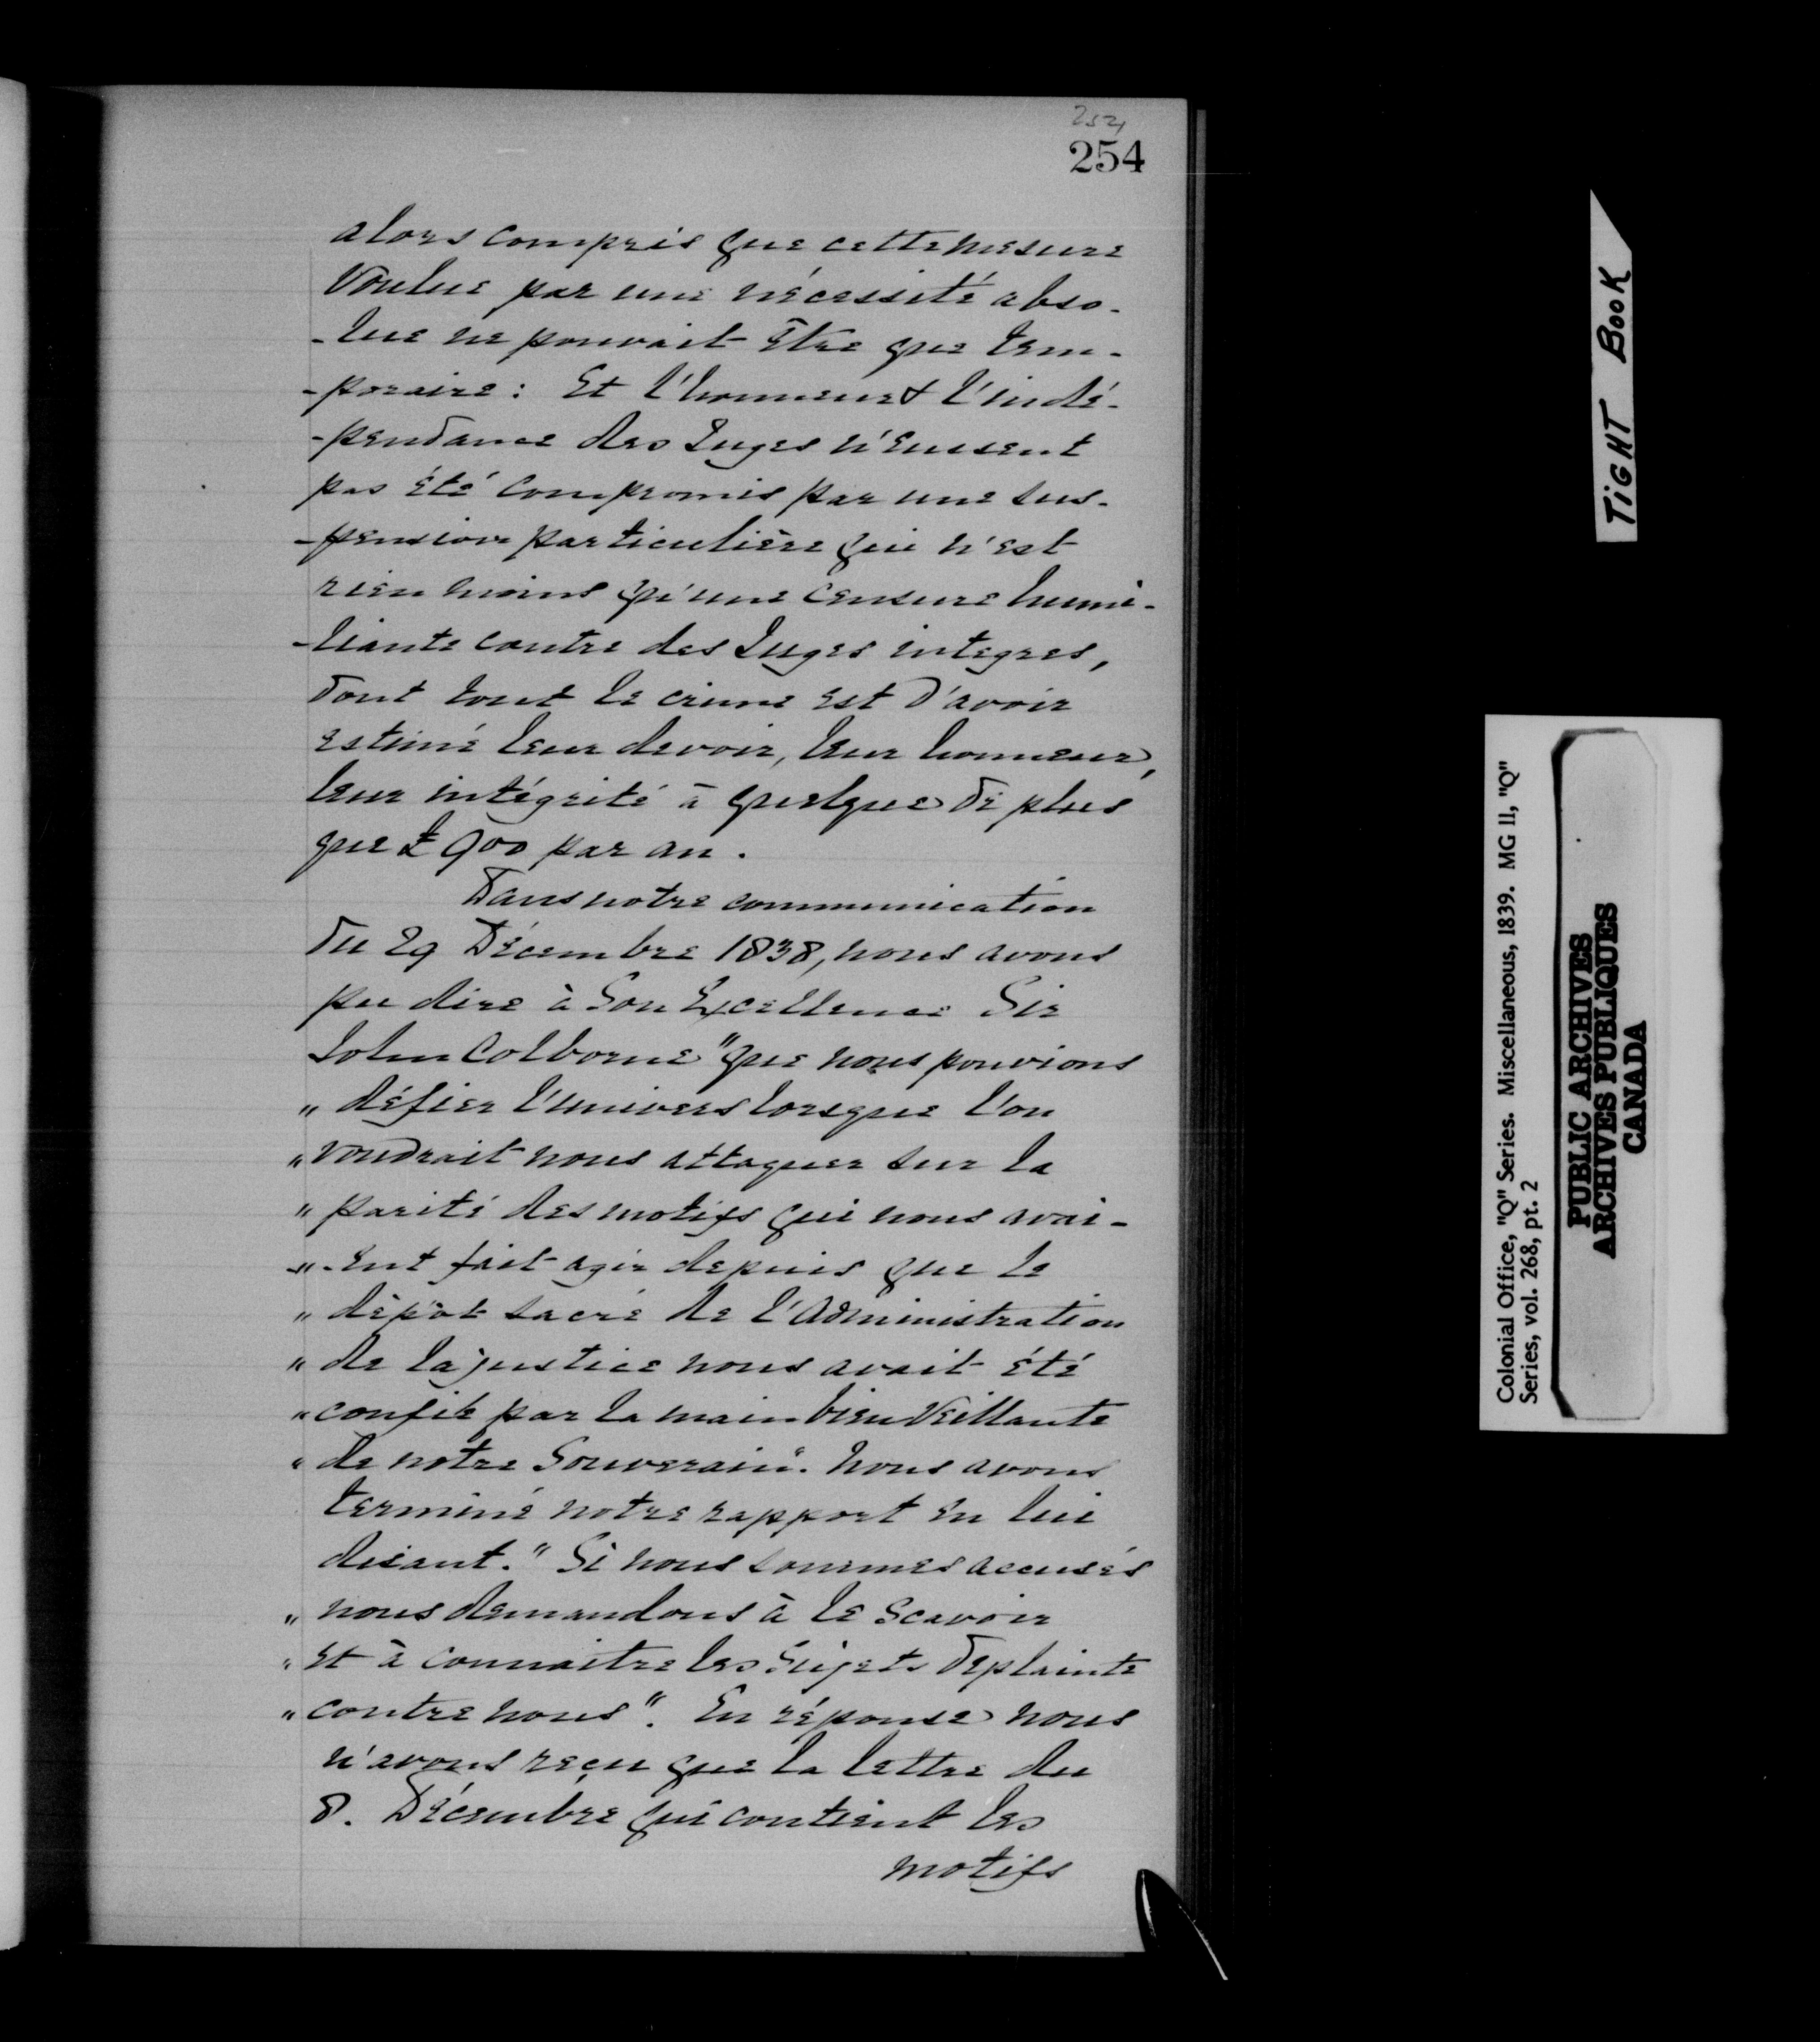 254
254
alors compris que cette mesure
voulue par une nécessité abso-
-lue ne pouvait être que tem-
-poraire: Et l'honneur & l'indé-
-pendance des Juges n'eussent
pas été compromis par une sus-
-pension particulière qui n'est
rien moins qu'une censure humi-
-liante contre des Juges integres,
dont tout le crime est d'avoir
estimé leur devoir, leur honneur,
leur intégrité à quelque de plus
que £900 par an.
Dans notre communication
du 29 Décembre 1838, nous avons
pu dire à Son Excellence Sir
John Colborne "que nous pouvions
" défier l'univers lorsque l'on
" voudrait nous attaquer sur la
" parité des motifs qui nous avai-
" -ent fait agir depuis que le
" dépôt sacré de l'Administration
" de la justice nous avait été
" confié par la main bienveillante
" de notre Souverain". Nous avons
terminé notre rapport en lui
disant. "Si nous sommes accusés
" nous demandons à le scavoir
" et à connaitre les Sujets de plainte
" contre nous". En réponse nous
n'avons reçu que la lettre du
8. Décembre qui contient les
motifs
TIGHT BOOK
Colonial Office, "Q" Series. Miscellaneous, 1839. MG 11, "Q"
Series, vol. 268, pt. 2
PUBLIC ARCHIVES
ARCHIVES PUBLIQUES
CANADA